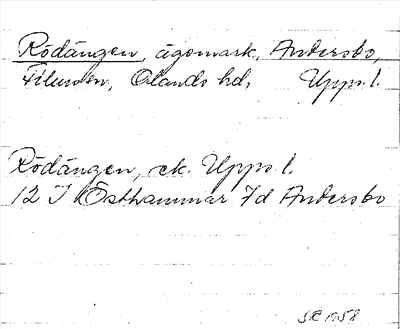 Rödängen, ägomark, Andersbo,
Films sn, Olands hd, Upps. l.
Rödängen, ek. Upps l.
12 I Östhammar 7d Andersbo
1958